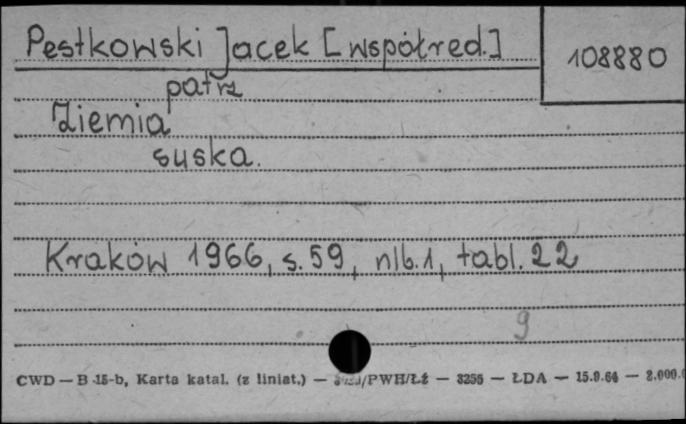 Pestkowski Jacek [współred.]
108880
patrz
Ziemia
suska.
Kraków 1966, s. 59, nlb. 1, tabl. 22
9
CWD — B 15-b, Karta katal. (z liniat.) — /PWH/Łź — 3255 — ŁDA — 15.9.64 — 2.000.0